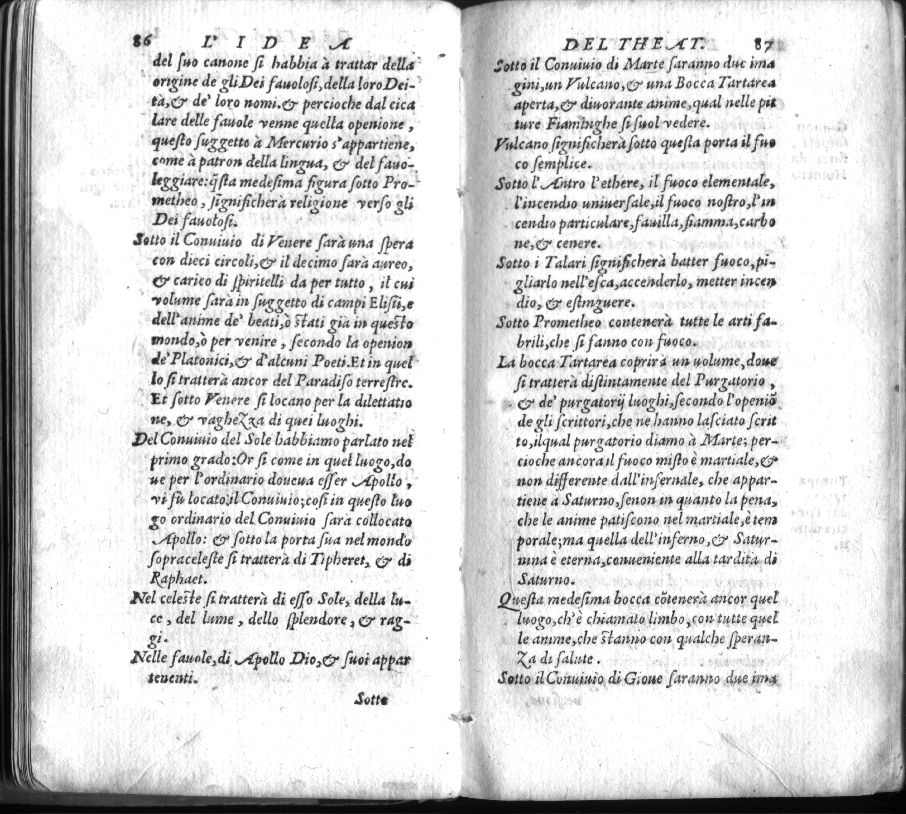 86 L' I D E A
del suo canone si habbia à trattar della
origine de gli Dei fauolosi, della loro Dei-
tà, & de' loro nomi. & percioche dal cica
lare delle fauole venne quella openione,
questo suggetto à Mercurio s'appartiene,
come à patron della lingua, & del fauo-
leggiare: q̃sta medesima figura sotto Pro-
metheo, significherà religione verso gli
Dei fauolosi.
Sotto il Conuiuio di Venere sarà una spera
con dieci circoli, & il decimo sarà aureo,
& carico di spiritelli da per tutto, il cui
volume sarà in suggetto di campi Elisii, e
dell'anime de' beati, ò stati già in questo
mondo, ò per venire, secondo la openion
de' Platonici, & d'alcuni Poeti. Et in quel
lo si tratterà ancor del Paradiso terrestre.
Et sotto Venere si locano per la dilettatio
ne, & vaghezza di quei luoghi.
Del Conuiuio del Sole habbiamo parlato nel
primo grado: Or si come in quel luogo, do
ue per l'ordinario doueua esser Apollo,
vi fù locato il Conuiuio; cosi in questo luo
go ordinario del Conuiuio sarà collocato
Apollo: & sotto la porta sua nel mondo
sopraceleste si tratterà di Tipheret, & di
Raphaet.
Nel celeste si tratterà di esso Sole, della lu-
ce, del lume, dello splendore, & rag-
gi.
Nelle fauole, di Apollo Dio, & suoi appar
tenenti.
Sotto
DEL THEAT. 87
Sotto il Conuiuio di Marte saranno due ima
gini, un Vulcano, & una Bocca Tartarea
aperta, & diuorante anime, qual nelle pit
ture Fiaminghe si suol vedere.
Vulcano significherà sotto questa porta il fuo
co semplice.
Sotto l'Antro l'ethere, il fuoco elementale,
l'incendio uniuersale, il fuoco nostro, l'in
cendio particulare, fauilla, fiamma, carbo
ne, & cenere.
Sotto i Talari significherà batter fuoco, pi-
gliarlo nell'esca, accenderlo, metter incen
dio, & estinguere.
Sotto Prometheo contenerà tutte le arti fa-
brili, che si fanno con fuoco.
La bocca Tartarea coprirà un volume, doue
si tratterà distintamente del Purgatorio,
& de' purgatorij luoghi, secondo l'openiõ
de gli scrittori, che ne hanno lasciato scrit
to, ilqual purgatorio diamo à Marte; per-
cioche ancora il fuoco misto è martiale, &
non differente dall'infernale, che appar-
tiene a Saturno, senon in quanto la pena,
che le anime patiscono nel martiale, è tem
porale; ma quella dell'inferno, & Satur-
nina è eterna, conueniente alla tardità di
Saturno.
Questa medesima bocca cõtenerà ancor quel
luogo, ch'è chiamato limbo, con tutte quel
le anime, che stanno con qualche speran-
za di salute.
Sotto il Conuiuio di Gioue saranno due ima